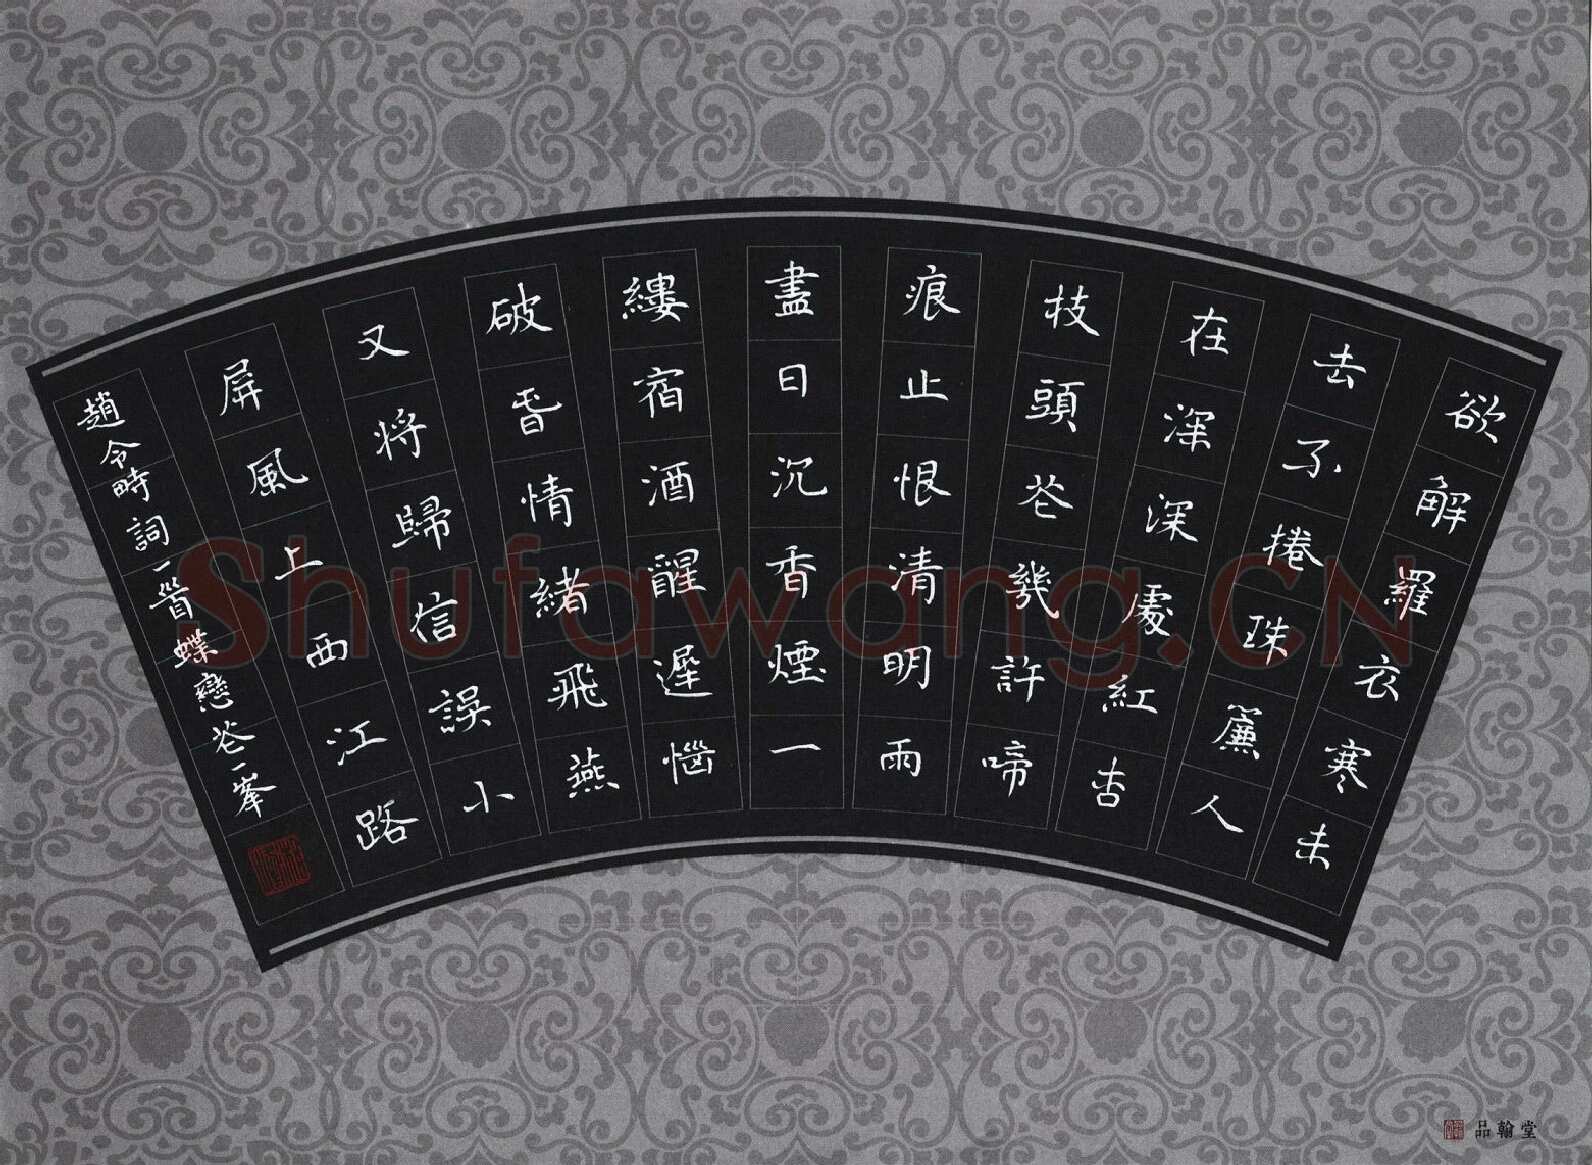 欲解羅衣寒未
去不捲珠簾人
在深深處紅杏
枝頭花幾許啼
痕止恨清明雨
盡日沉香煙一
縷宿酒醒遲惱
破昏情緒飛燕
又將歸信誤小
屏風上西江路
趙令時詞一首蝶戀花一峯
Shufawang.CN
品翰堂